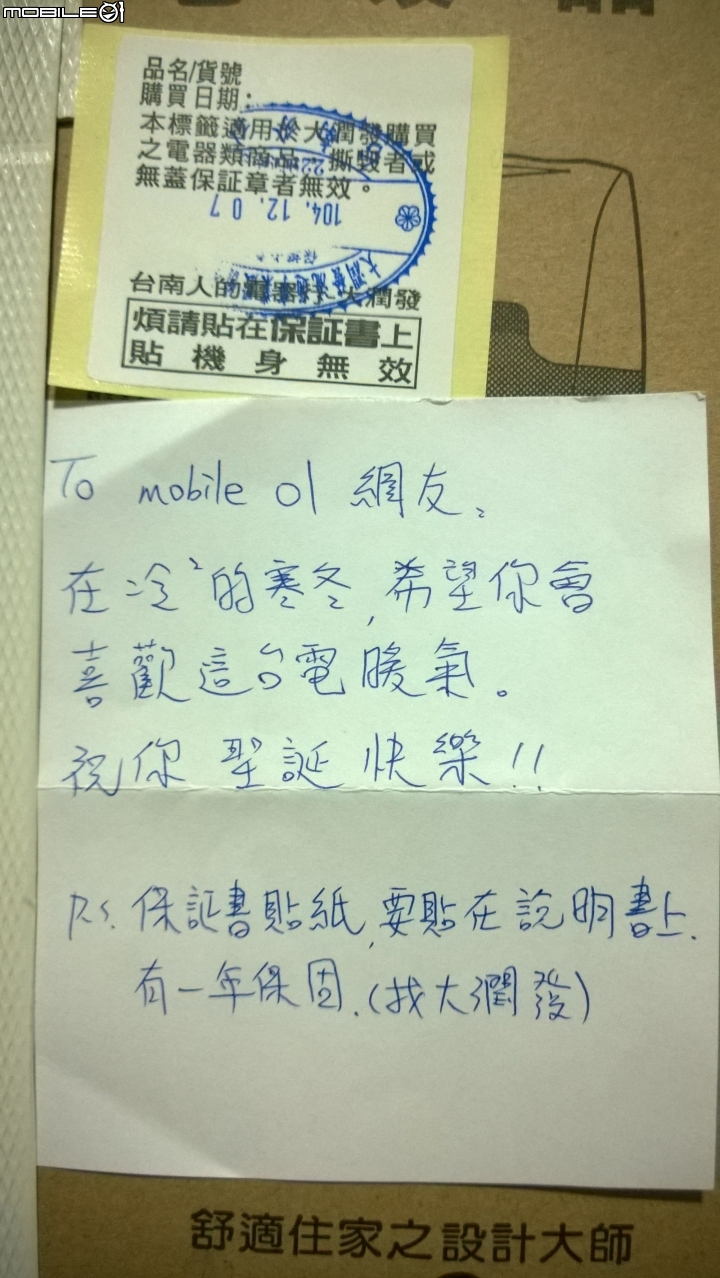 MOBILE01
品名/貨號
購買日期:
本標籤適用於大潤發購買
之電器類商品,撕毀者或
無蓋保証章者無效。
104.12.07
台南人的電器行大潤發
煩請貼在保証書上
貼機身無效
To mobile 01 網友。
在冷²的寒冬,希望你會
喜歡這台電暖氣。
祝你 聖誕快樂!!
P.S. 保証書貼紙,要貼在說明書上.
有一年保固.(找大潤發)
舒適住家之設計大師